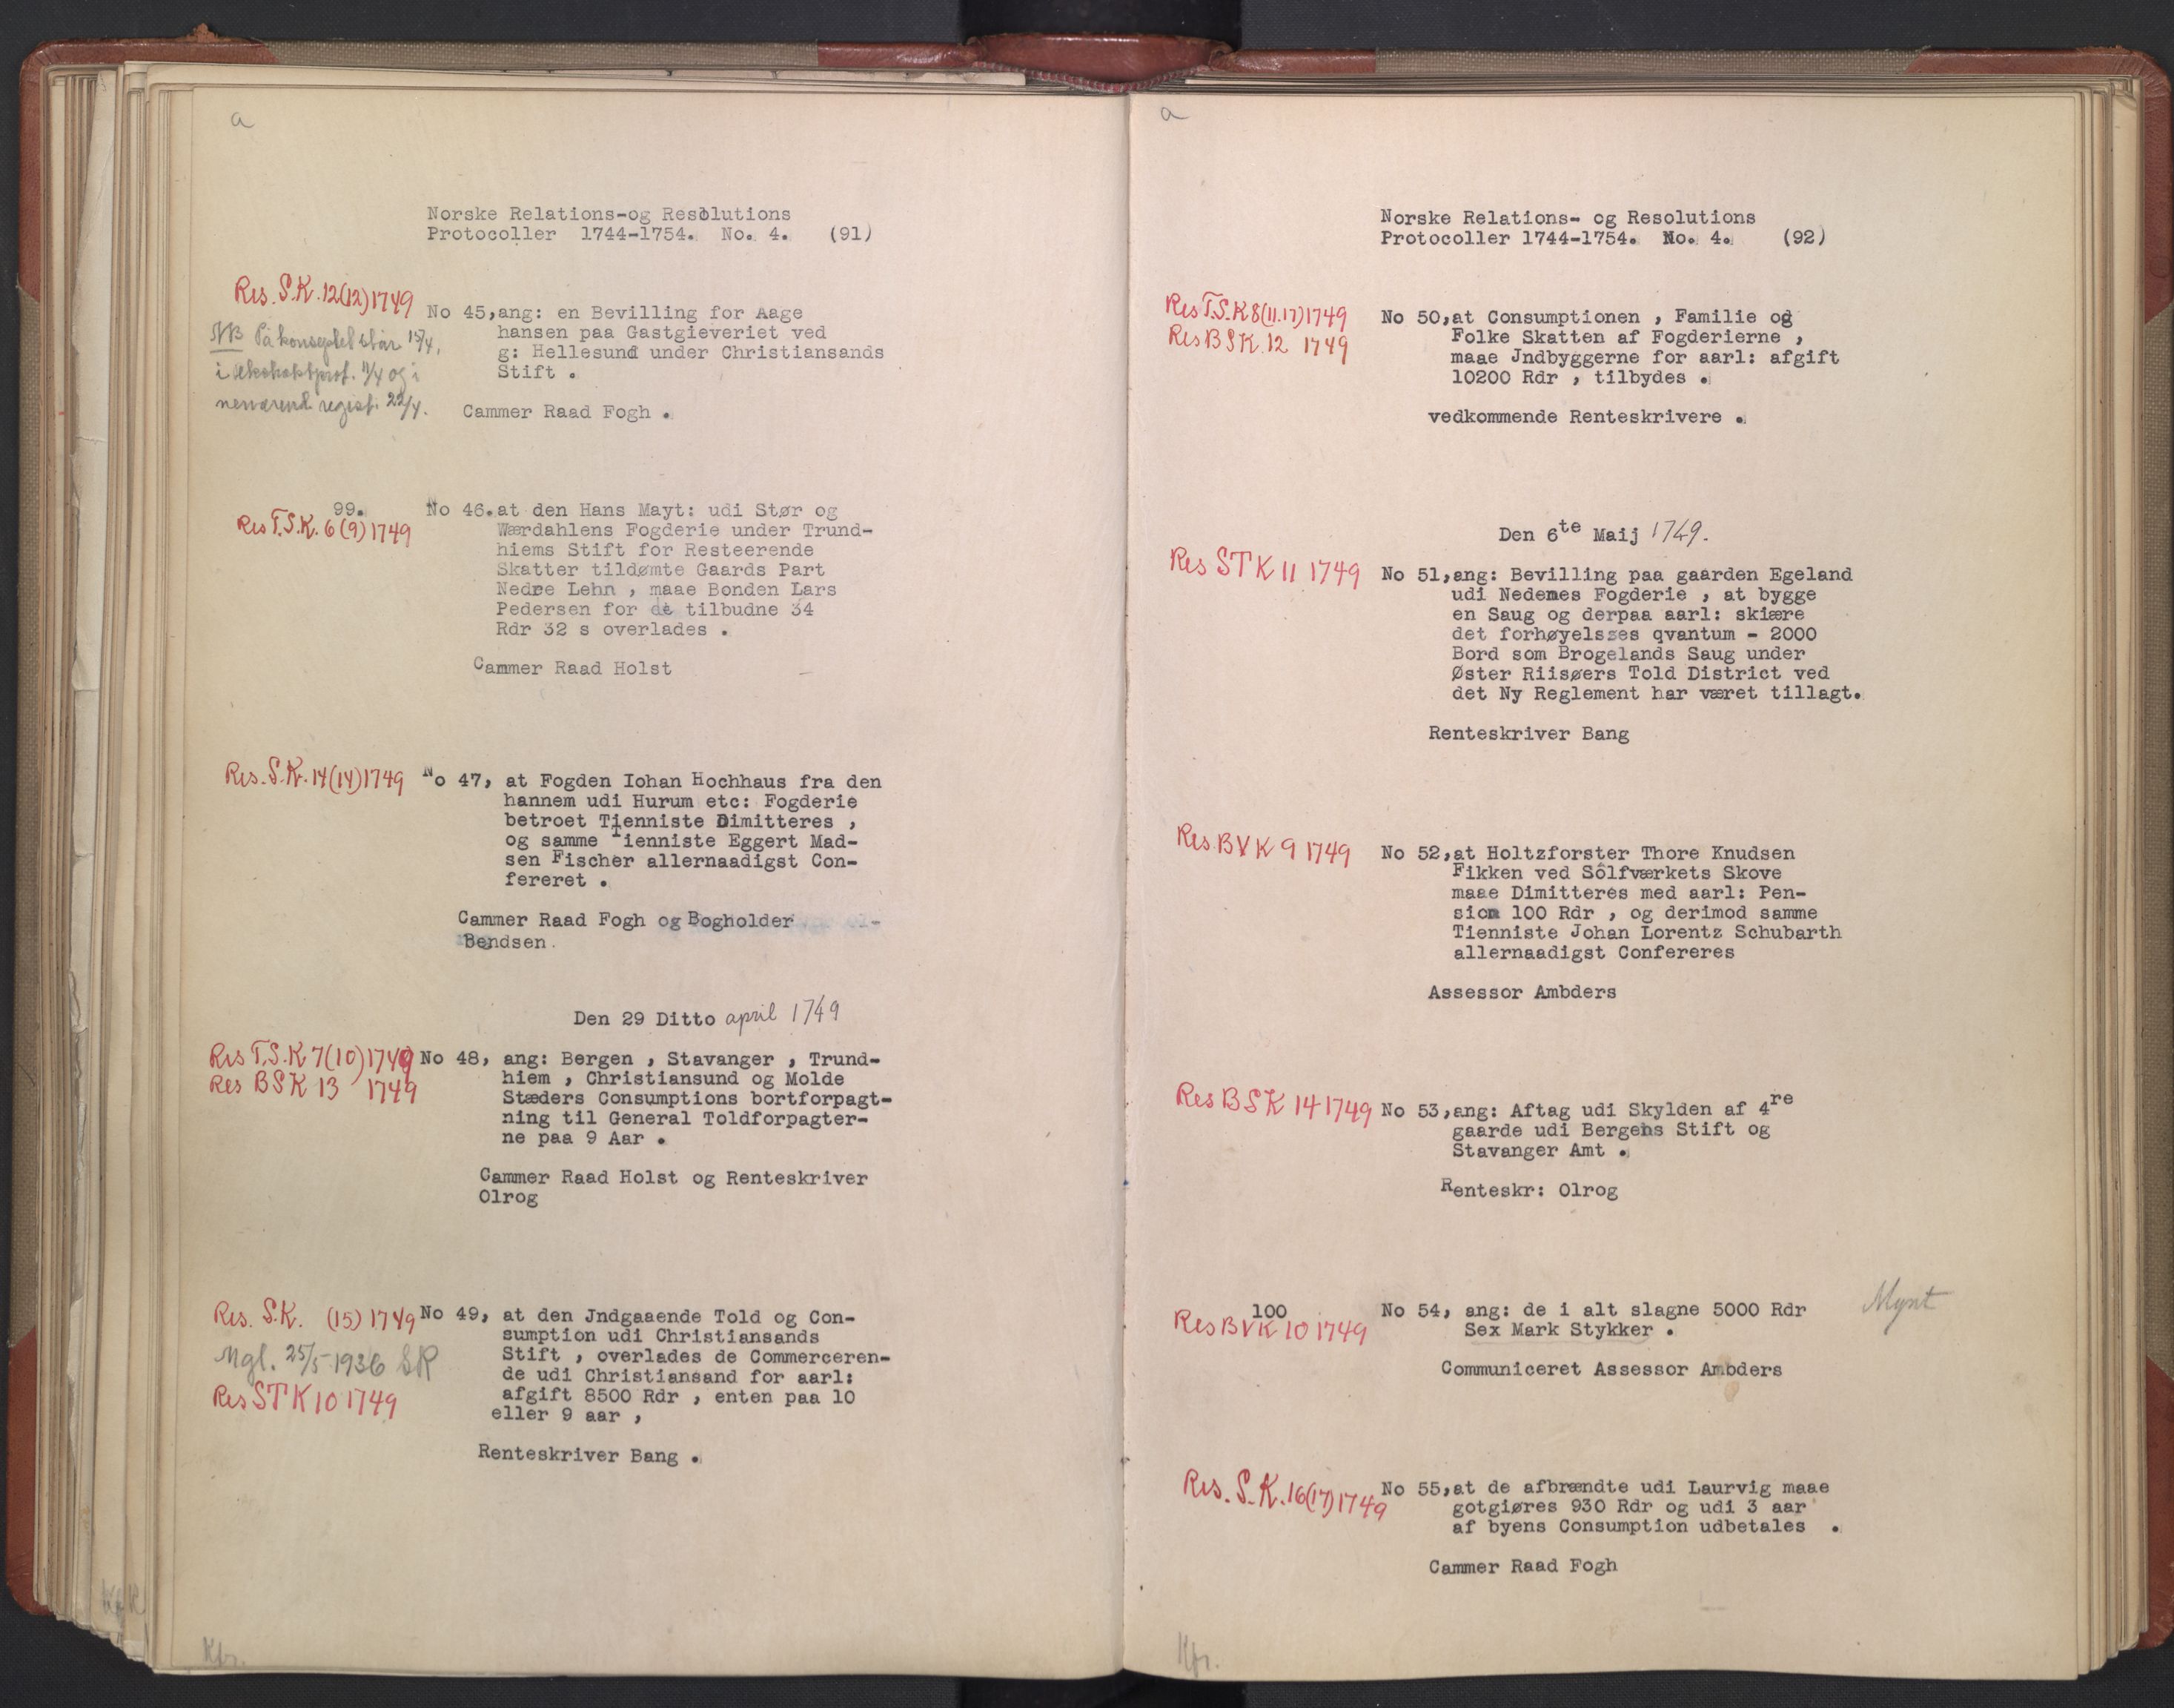 a
Norske Relations-og Resolutions
Protocoller 1744-1754. No. 4. (91)
Res. S.K. 12(12)1749
NB På konseptet står 15/4,
i 11/4 og i
nerværende regist. 22/4.
No 45,ang: en Bevilling for Aage
hansen paa Gastgieveriet ved
g: Hellesund under Christiansands
Stift .
Cammer Raad Fogh .
99.
Res T.S.K. 6(9)1749
No 46.at den Hans Mayt: udi Stør og
Værdahlens Fogderie under Trund-
hiems Stift for Resteerende
Skatter tildømte Gaards Part
Nedre Lehn , maae Bonden Lars
Pedersen for de tilbudne 34
Rdr 32 s overlades .
Cammer Raad Holst
Res. S.K. 14(14)1749
No 47, at Fogden Iohan Hochhaus fra den
hannem udi Hurum etc: Fogderie
betroet Tienniste Dimitteres ,
og samme Tienniste Eggert Mad-
sen Fischer allernaadigst Con-
fereret .
Cammer Raad Fogh og Bogholder
Bendsen.
Den 29 Ditto april 1749
Res T.S.K 7(10)1749
Res BSK 13 1749
No 48, ang: Bergen , Stavanger , Trund-
hiem , Christiansund og Molde
Stæders Consumptions bortforpagt-
ning til General Toldforpagter-
ne paa 9 Aar .
Cammer Raad Holst og Renteskriver
Olrog
Res. S.K. (15) 1749
Mgl. 25/5-1936 SR
Res STK 10 1749
No 49, at den Jndgaaende Told og Con-
sumption udi Christiansands
Stift , overlades de Commerceren-
de udi Christiansand for aarl:
afgift 8500 Rdr , enten paa 10
eller 9 aar ,
Renteskriver Bang .
Kfr.
a
Norske Relations- og Resolutions
Protocoller 1744-1754. No. 4. (92)
Res T.S.K 8(11.17)1749
Res BSK. 12 1749
No 50,at Consumptionen , Familie og
Folke Skatten af Fogderierne ,
maae Jndbyggerne for aarl: afgift
10200 Rdr , tilbydes .
vedkommende Renteskrivere .
Den 6te Maij 1749.
Res STK 11 1749
No 51,ang: Bevilling paa gaarden Egeland
udi Nedenes Fogderie , at bygge
en Saug og derpaa aarl: skiære
det forhøyelsses qvantum - 2000
Bord som Brogelands Saug under
Øster Riisøers Told District ved
det Ny Reglement har været tillagt.
Renteskriver Bang
Res. BVK 9 1749
No 52,at Holtzforster Thore Knudsen
Fikken ved Sölfværkets Skove
maae Dimitteres med aarl: Pen-
sion 100 Rdr , og derimod samme
Tienniste Johan Lorentz Schubarth
allernaadigst Confereres
Assessor Ambders
Res BSK 14 1749
No 53,ang: Aftag udi Skylden af 4re
gaarde udi Bergens Stift og
Stavanger Amt .
Renteskr: Olrog
100
Res BVK 10 1749
No 54, ang: de i alt slagne 5000 Rdr
Sex Mark Stykker .
Mynt
Communiceret Assessor Ambders
Res. S.K. 16(17)1749
No 55,at de afbrændte udi Laurvig maae
gotgiøres 930 Rdr og udi 3 aar
af byens Consumption udbetales .
Cammer Raad Fogh
Kfr.